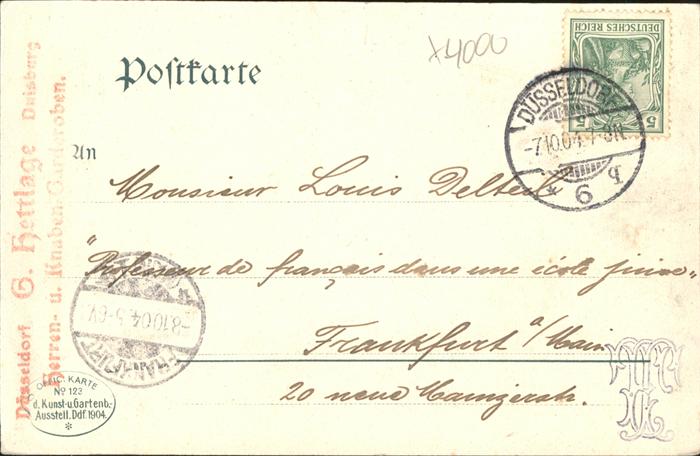 x4000
DEUTSCHES REICH
5 5
Postkarte
DÜSSELDORF
-7.10.04.7-8N.
* 9 g.
An
Monsieur Louis Delteil
"Professeur de français dans une école juive"
Frankfurt a/Main
20 neue Mainzerstr.
FRANKFURT
-8.10.04.5-6V.
Düsseldorf G. Hettlage Duisburg
Herren- u. Knaben-Garderoben.
OFFIC. KARTE
No 123
d. Kunst-u Gartenb.-
Ausstell. Ddf. 1904.
*